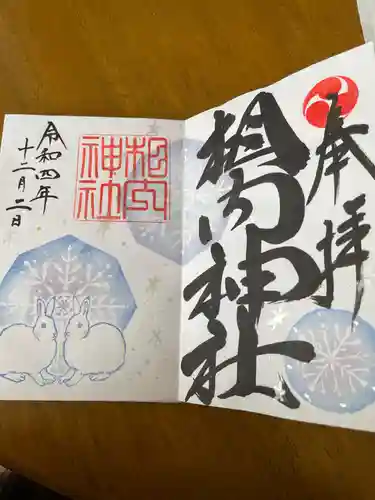 奉拝
相内神社
相内
神社
令和四年
十二月二日